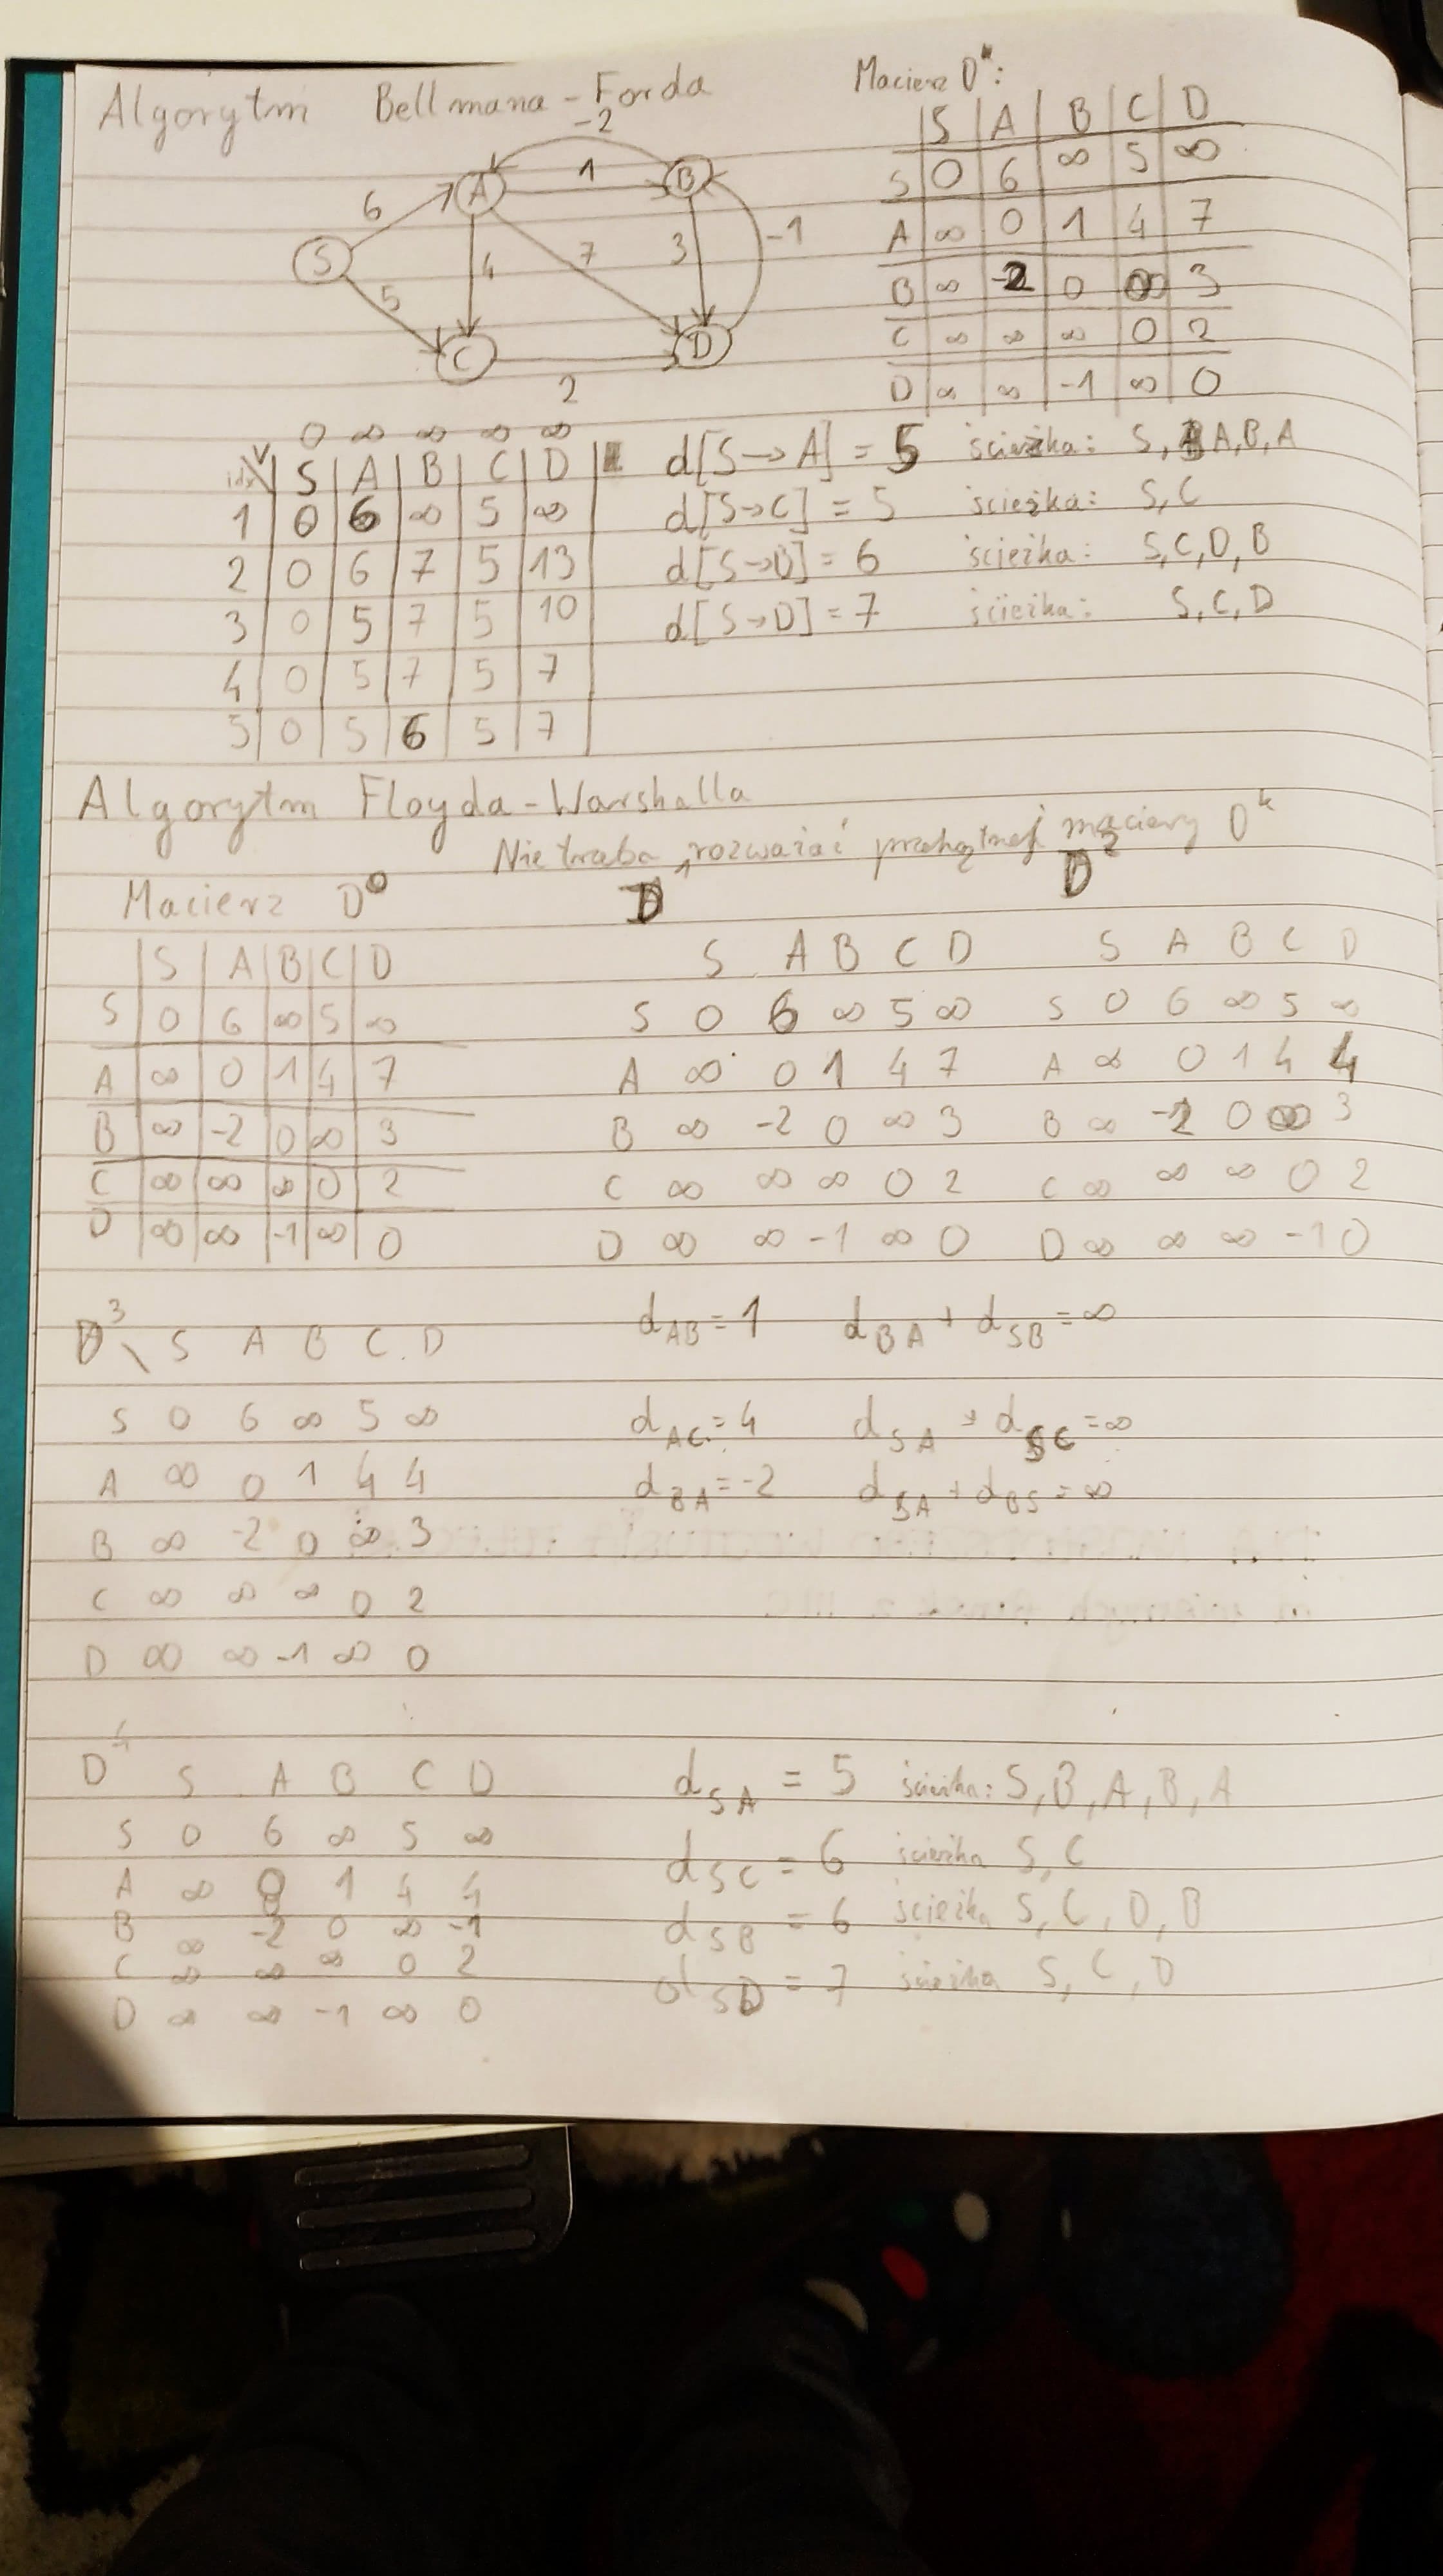 Algorytm Bellmana-Forda
-2
6 A 1 B
S 4 7 3 -1
5
C 2 D
Macierz D^k:
S A B C D
S 0 6 ∞ 5 ∞
A ∞ 0 1 4 7
B ∞ -2 0 ∞ 3
C ∞ ∞ ∞ 0 2
D ∞ ∞ -1 ∞ 0
0 ∞ ∞ ∞ ∞
V S A B C D
1 0 6 ∞ 5 ∞
2 0 6 7 5 13
3 0 5 7 5 10
4 0 5 7 5 7
5 0 5 6 5 7
d[S→A] = 5 ścieżka: S, A, B, A
d[S→C] = 5 ścieżka: S, C
d[S→B] = 6 ścieżka: S, C, D, B
d[S→D] = 7 ścieżka: S, C, D
Algorytm Floyda-Warshalla
Nie trzeba rozważać przekątnej macierzy D^k
Macierz D^0
S A B C D
S 0 6 ∞ 5 ∞
A ∞ 0 1 4 7
B ∞ -2 0 ∞ 3
C ∞ ∞ ∞ 0 2
D ∞ ∞ -1 ∞ 0
D^1
S A B C D
S 0 6 ∞ 5 ∞
A ∞ 0 1 4 7
B ∞ -2 0 ∞ 3
C ∞ ∞ ∞ 0 2
D ∞ ∞ -1 ∞ 0
D^2
S A B C D
S 0 6 ∞ 5 ∞
A ∞ 0 1 4 4
B ∞ -2 0 ∞ 3
C ∞ ∞ ∞ 0 2
D ∞ ∞ ∞ -1 0
D^3 S A B C D
S 0 6 ∞ 5 ∞
A ∞ 0 1 4 4
B ∞ -2 0 ∞ 3
C ∞ ∞ ∞ 0 2
D ∞ ∞ -1 ∞ 0
d_AB = 1 d_BA + d_SB = ∞
d_AC = 4 d_SA + d_SC = ∞
d_BA = -2 d_SA + d_BS = ∞
D^4 S A B C D
S 0 6 ∞ 5 ∞
A ∞ 0 1 4 4
B ∞ -2 0 ∞ -1
C ∞ ∞ ∞ 0 2
D ∞ ∞ -1 ∞ 0
d_SA = 5 ścieżka: S, B, A, B, A
d_SC = 6 ścieżka S, C
d_SB = 6 ścieżka S, C, D, B
d_SD = 7 ścieżka S, C, D